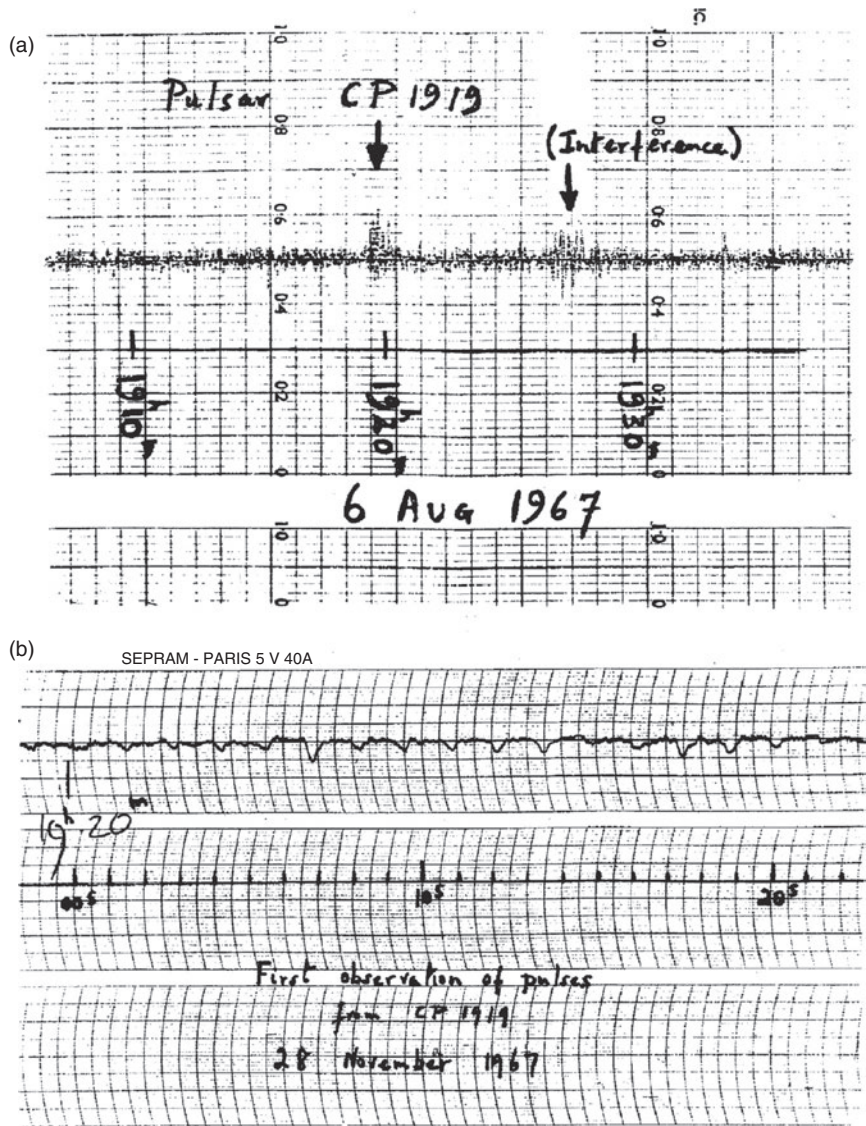 (a)
1·0 1·0
Pulsar CP 1919
0·8 0·8
(Interference)
0·6 0·6
0·4 0·4
0·2 0·2
19h10m 19h20m 19h30m
0 0
6 AUG 1967
1·0 1·0
0 0
(b)
SEPRAM - PARIS 5 V 40A
19h.20m
00s 10s 20s
First observation of pulses
from CP 1919
28 November 1967